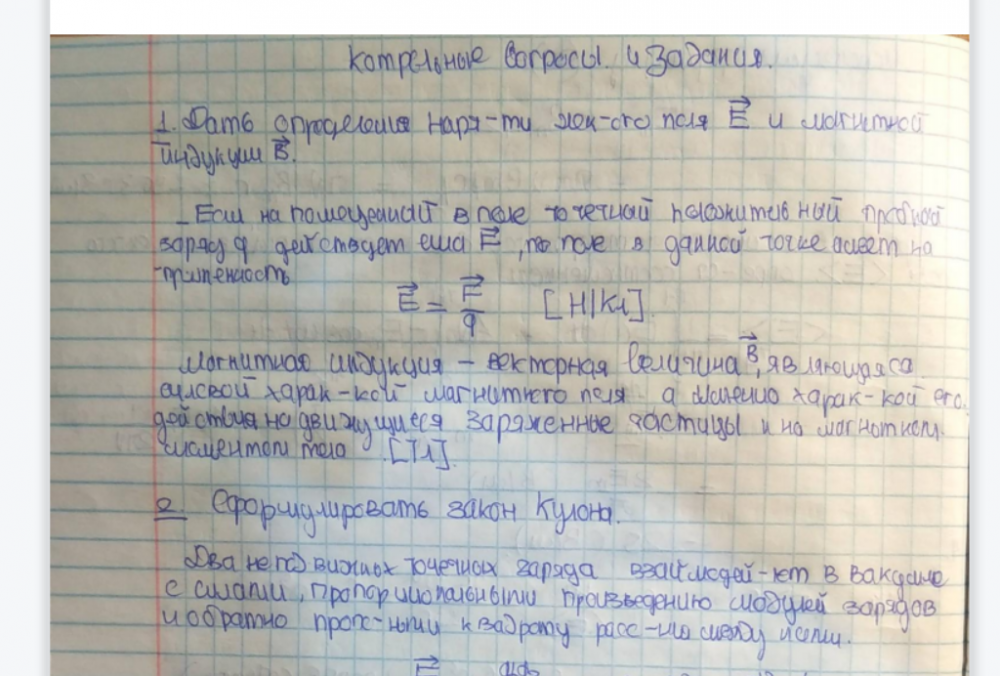 Котрельные вопросы. и задания.
1. Дать определения напря-ти элек-ого поля E⃗ и магнитной
индукции B⃗.
– Если на помещенный в поле точечный положительный пробный
заряд q действует сила F⃗, то поле в данной точке имеет на
пряженность
E⃗ = F⃗/q [Н/Кл].
Магнитная индукция – векторная величина B⃗, являющаяся
силовой харак-кой магнитного поля а именно харак-кой его
действия на движущиеся заряженные частицы и на
тело [Тл].
2. Сформулировать закон Кулона.
Два неподвижных точечных заряда взаимодей-ют в вакууме
с силами, пропорциональными произведению модулей зарядов
и обратно проп-ными квадрату расс-ию между ними.
F⃗